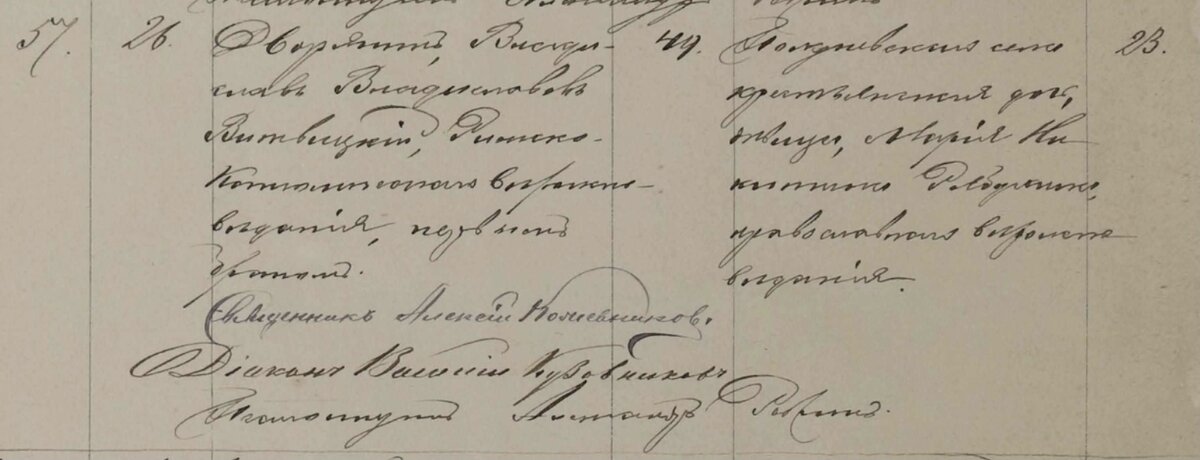 57.
26.
Дворянинъ, Влади-
славъ Владиславовъ
Витвицкій, Римско-
Католическаго вѣроиспо-
вѣданія, первымъ
бракомъ.
49.
села
крестьянская дочь,
дѣвица, Марія Ни-
китина
православнаго вѣроиспо-
вѣданія.
23.
Священникъ Алексій Кожевниковъ.
Діаконъ Василій Кузовниковъ
Псаломщикъ Александръ